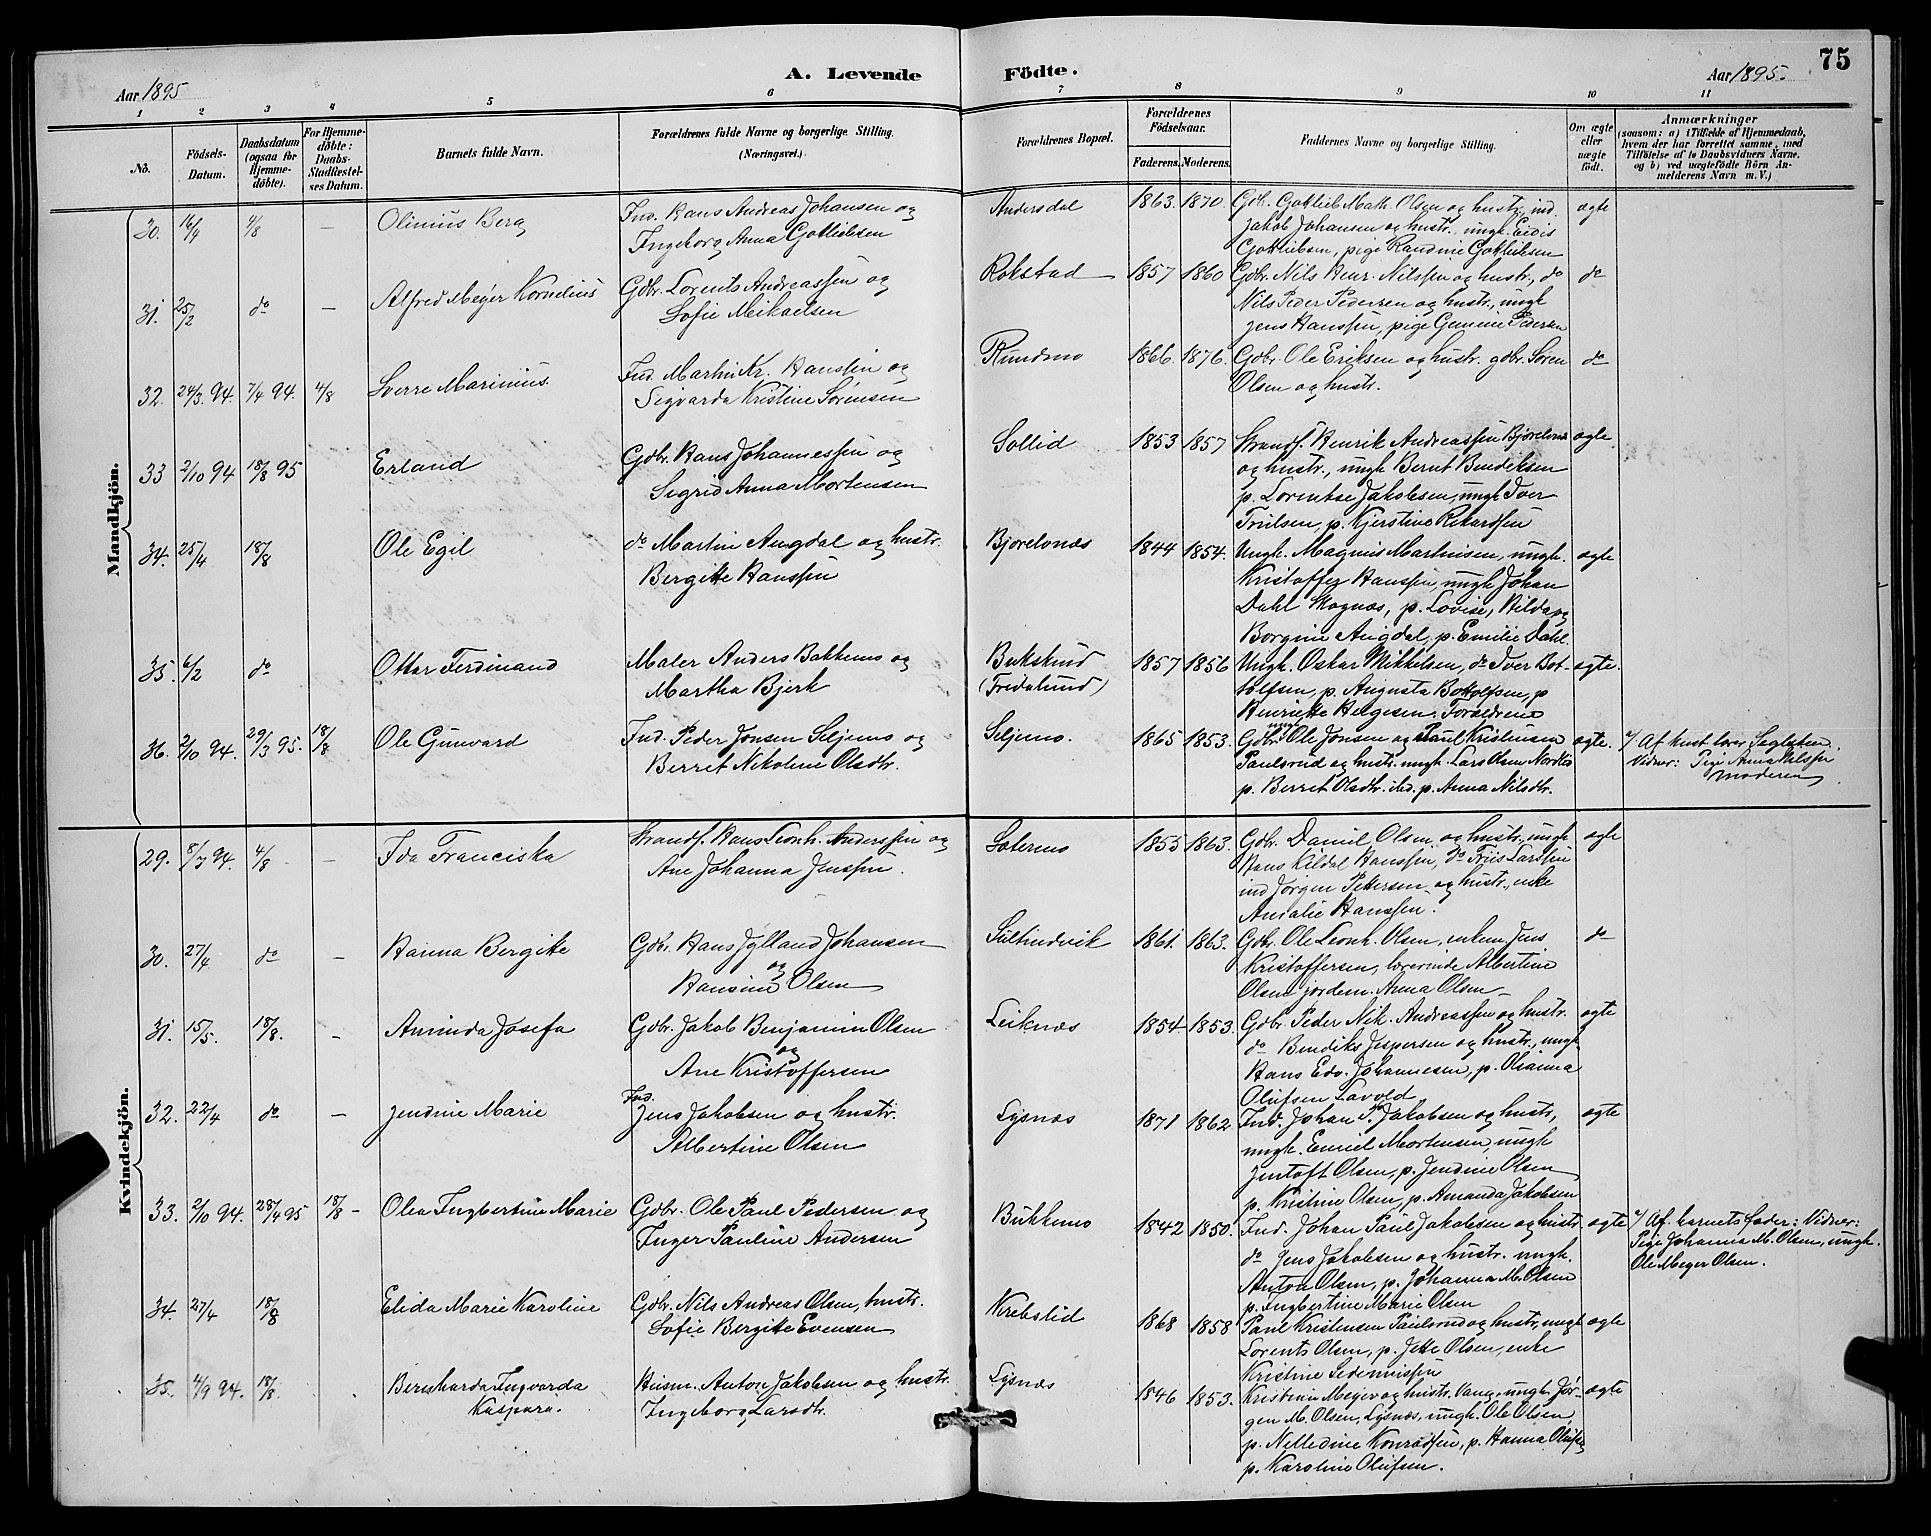 75
A. Levende Födte.
Aar 1895
Aar 1895.
1 2 3 4 5 6 7 8 9 10 11
No.
Födsels-Datum.
Daabsdatum (ogsaa for Hjemmedöbte).
For Hjemmedöbte: Daabs-Stadfæstelses Datum.
Barnets fulde Navn.
Forældrenes fulde Navne og borgerlige Stilling.
(Næringsvei.)
Forældrenes Bopæl.
Forældrenes Födselsaar.
Faderens. Moderens.
Faddernes Navne og borgerlige Stilling.
Om ægte eller uægte födt.
Anmærkninger
(saasom: a) i Tilfælde af Hjemmedaab, hvem der har forrettet samme, med Tilföielse af to Daabsvidners Navne, og b) ved uægtefödte Börn Anmelderens Navn m. V.)
Mandkjön.
30. 16/4 4/8 — Olinius Berg
Ind. Hans Andreas Johansen og
Ingeborg Anna Gotliebsen
Andersdal 1863. 1870.
Gbr. Gotlieb Math. Olsen og hustr., ind.
Jakob Johansen og hustr., ungk. Eidis
Gotliebsen, pige Randine Gotliebsen
ægte
31. 25/2 do — Alfred Meyer Kornelius
Gdbr. Lorents Andreassen og
Sofie Mikaelsen
Rokstad 1857 1860
Gdbr. Nils Henr. Nilssen og hustr., do
Nils Peder Pedersen og hustr., ungk
Jens Hanssen, pige Gemine Pedersen
do
32. 24/3 94. 7/4 94. 4/8 Sverre Marinius.
Ind. Martin Kr. Hanssen og
Segvarda Kristine Sørensen
Rundmo 1866. 1876.
Gdbr. Ole Eriksen og hustr. gdbr. Søren
Olsen og hustr.
do
33 2/10 94 18/8 95 Erland
Gdbr. Hans Johannessen og
Sigrid Anna Mortensen
Sollid 1853 1857
Strandf. Henrik Andreassen Bjorelvnes
og hustr., ungk Bernt Bendiksen
p. Lorentse Jakobsen, ungk Iver
Trulsen, p. Kjerstine Rikardsen
ægte
34. 25/4 18/8 Ole Egil
do Martin Angdal og hustr.
Bergitte Hanssen
Bjorelvnæs 1844 1854.
Ungk. Magnus Martinsen, ungk.
Kristoffer Hanssen, ungk Johan
Dahl Skognæs, p. Lovise, Hilda og
Borgine Angdal, p. Emilie Dahl
ægte
35. 6/2 do Ottar Ferdinand
Maler Anders Bakkemo og
Martha Bjerk
Bukskind
(Fredslund)
1857 1856
Ungk. Oskar Mikkelsen, do Iver Bot-
tolfsen, p. Augusta Bottolfsen, p
Henriette Helgesen. Forældrene
ægte.
36. 2/10 94. 29/3 95. 18/8 Ole Gunvard
Ind. Peder Jonsen Seljemo og
Berret Nikoline Olsdtr.
Seljemo. 1865 1853.
Gdbr. Ole Jonsen og Paul Kristensen
Paulsrud og hustr. ungk. Lars Olsen
p. Berret Olsdtr. ibd. p. Anna Nilsdtr.
ægte.
Vidner: Pige Anna Nilssen
Moderen
Kvindekjön.
29. 8/7 94. 4/8 — Ida Franciska
Strandf. Hans Leonh. Anderssen og
Ane Johanna Jenssen.
Sætermo 1855 1863.
Gdbr. Daniel Olsen og hustr., ungk
Hans Kildal Hanssen, do Friis Larssen
ind Jørgen Pettersen og hustr., enke
Amalie Hanssen.
ægte
30. 27/4 do — Hanna Bergitte
Gdbr. Hans Jylland Johansen
og
Hansine Olsen
Sultindvik 1861. 1863.
Gdbr. Ole Leonh. Olsen, enkem Jens
Kristoffersen, lærerinde Albertine
Olsen jordem. Anna Olsen
do
31. 15/5. 18/8. — Aminda Josefa
Gdbr. Jakob Benjamin Olsen
og
Ane Kristoffersen
Leiknæs 1854 1853.
Gdbr. Peder Nik. Andreassen og hustr.
do Bendiks Jespersen og hustr., ungk.
Hans Edv. Johannesen, p. Olianna
Olufsen Lavold
ægte
32. 22/4 do — Jendine Marie
Ind.
Jens Jakobsen og hustr.
Albertine Olsen
Lysnæs 1871 1862
Ind. Johan P. Jakobsen og hustr,
ungk. Emiel Mortensen, ungk
Jentoft Olsen, p. Jendine Olsen
p. Kristine Olsen, p. Amanda Jakobsen
ægte
33. 2/10 94. 28/4 95 18/8 — Olea Ingbertine Marie
Gdbr. Ole Paul Pedersen og
Inger Pauline Andersen
Bukkemo 1842 1850.
Ind. Johan Paul Jakobsen og hustr
do Jens Jakobsen og hustr. ungk.
Anton Olsen, p. Johanna M. Olsen
p. Ingbertine Marie Olsen
ægte
Af barnets fader: Vidner:
Pige Johanna M. Olsen, ungk.
Ole Meyer Olsen.
34. 27/4 18/8 Elida Marie Karoline
Gdbr. Nils Andreas Olsen, hustr.
Sofie Bergitte Evensen
Krabstid 1868 1858
Paul Kristensen Paulsrud og hustr, ungk
Lorents Olsen, p. Jette Olsen, enke
Kristine
ægte
35. 4/9 94. 18/8. Bernharda Ingvarda
Kaspara.
Husm. Anton Jakobsen og hustr.
Ingeborg Larsdtr.
Lysnæs 1846 1853.
Kristian Meyer og hustr. Vang, ungk. Jør-
gen M. Olsen, Lysnæs, ungk. Ole Olsen,
p. Nelledine Konradsen, p. Hanna Olufsen
p. Karoline Olufsen.
ægte